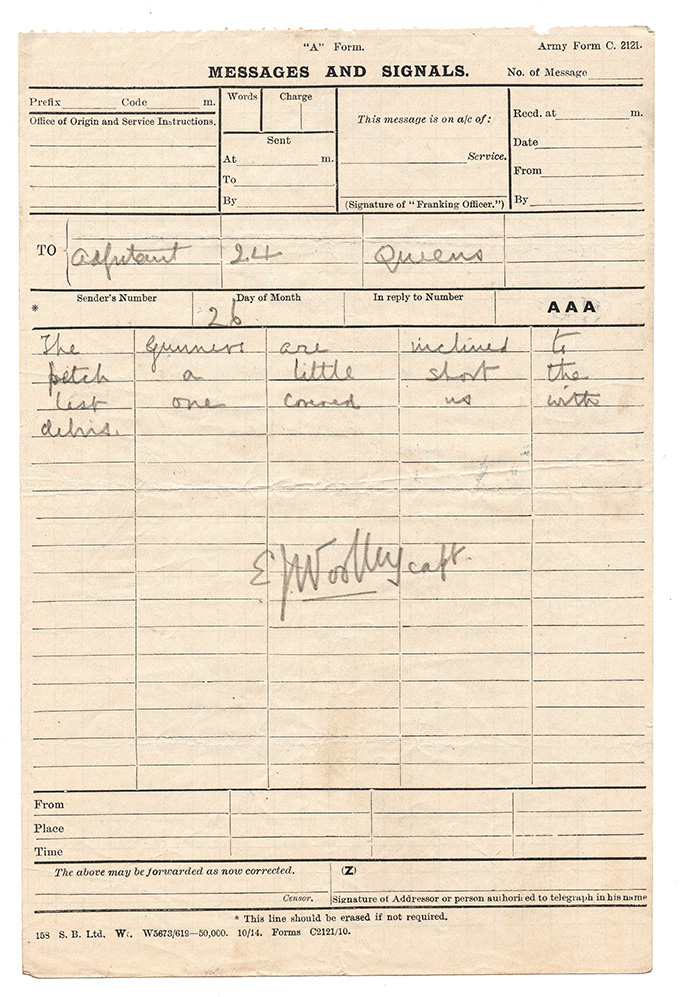 "A" Form.
Army Form C. 2121.
MESSAGES AND SIGNALS.
No. of Message
Prefix Code m.
Words Charge
This message is on a/c of:
Recd. at m.
Office of Origin and Service Instructions.
Sent
Date
At m.
Service.
From
To
By
(Signature of "Franking Officer.")
By
TO Adjutant 24 Queens
Sender's Number
Day of Month
In reply to Number
AAA
*
26
The Gunners are inclined to
pitch a little short the
last one covered us with
debris.
E J Woolley capt.
From
Place
Time
The above may be forwarded as now corrected.
(Z)
Censor.
Signature of Addressor or person authorised to telegraph in his name
* This line should be erased if not required.
158 S. B. Ltd. Wt. W5673/619—50,000. 10/14. Forms C2121/10.